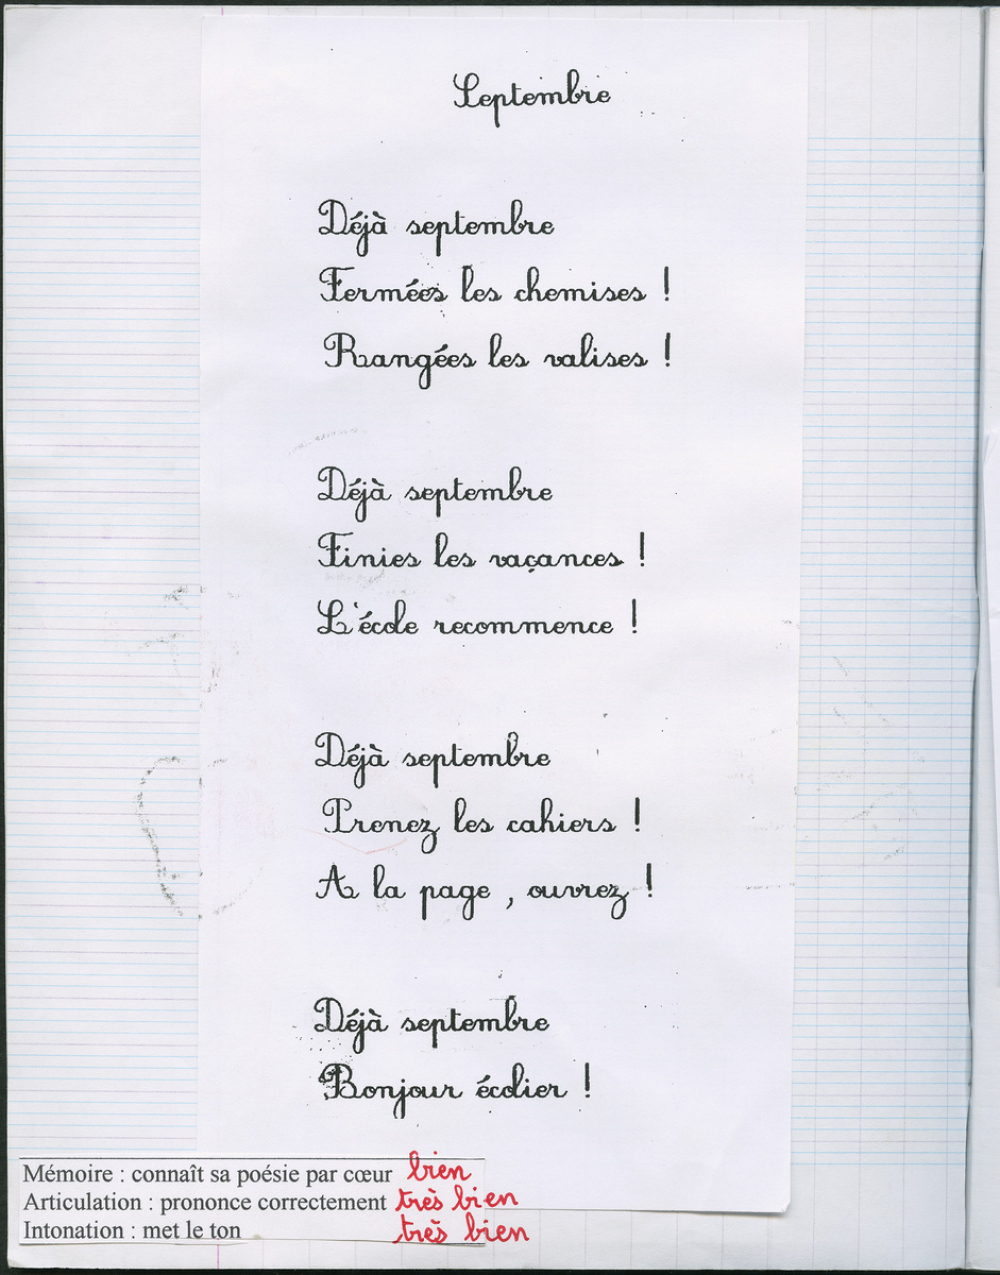 Septembre
Déjà septembre
Fermées les chemises !
Rangées les valises !
Déjà septembre
Finies les vaçances !
L'école recommence !
Déjà septembre
Prenez les cahiers !
A la page , ouvrez !
Déjà septembre
Bonjour écolier !
Mémoire : connaît sa poésie par cœur bien
Articulation : prononce correctement très bien
Intonation : met le ton très bien